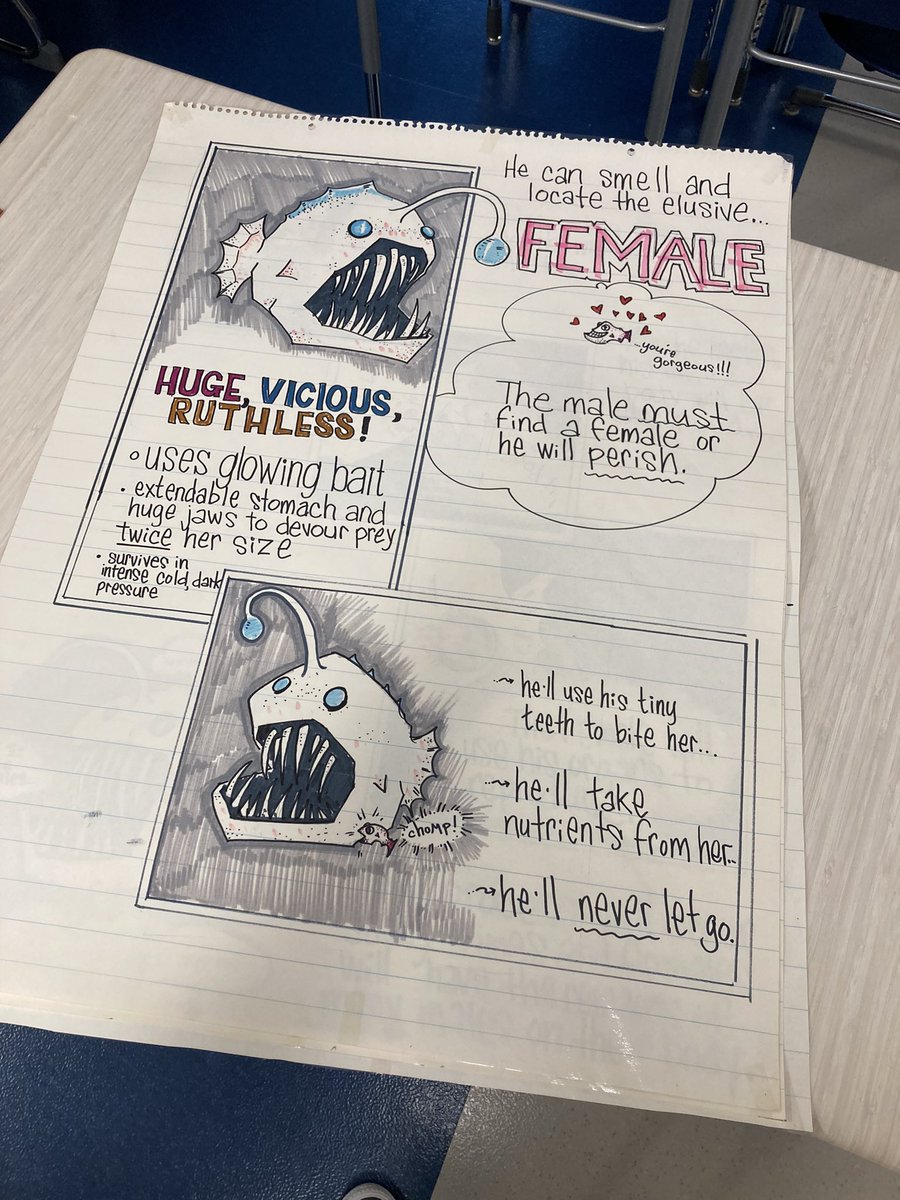 He can smell and
locate the elusive...
FEMALE
you're
gorgeous!!!
The male must
find a female or
he will perish.
HUGE, VICIOUS,
RUTHLESS!
uses glowing bait
• extendable stomach and
huge jaws to devour prey
twice her size
• survives in
intense cold, dark
pressure
he'll use his tiny
teeth to bite her...
he'll take
nutrients from her..
he'll never let go.
chomp!